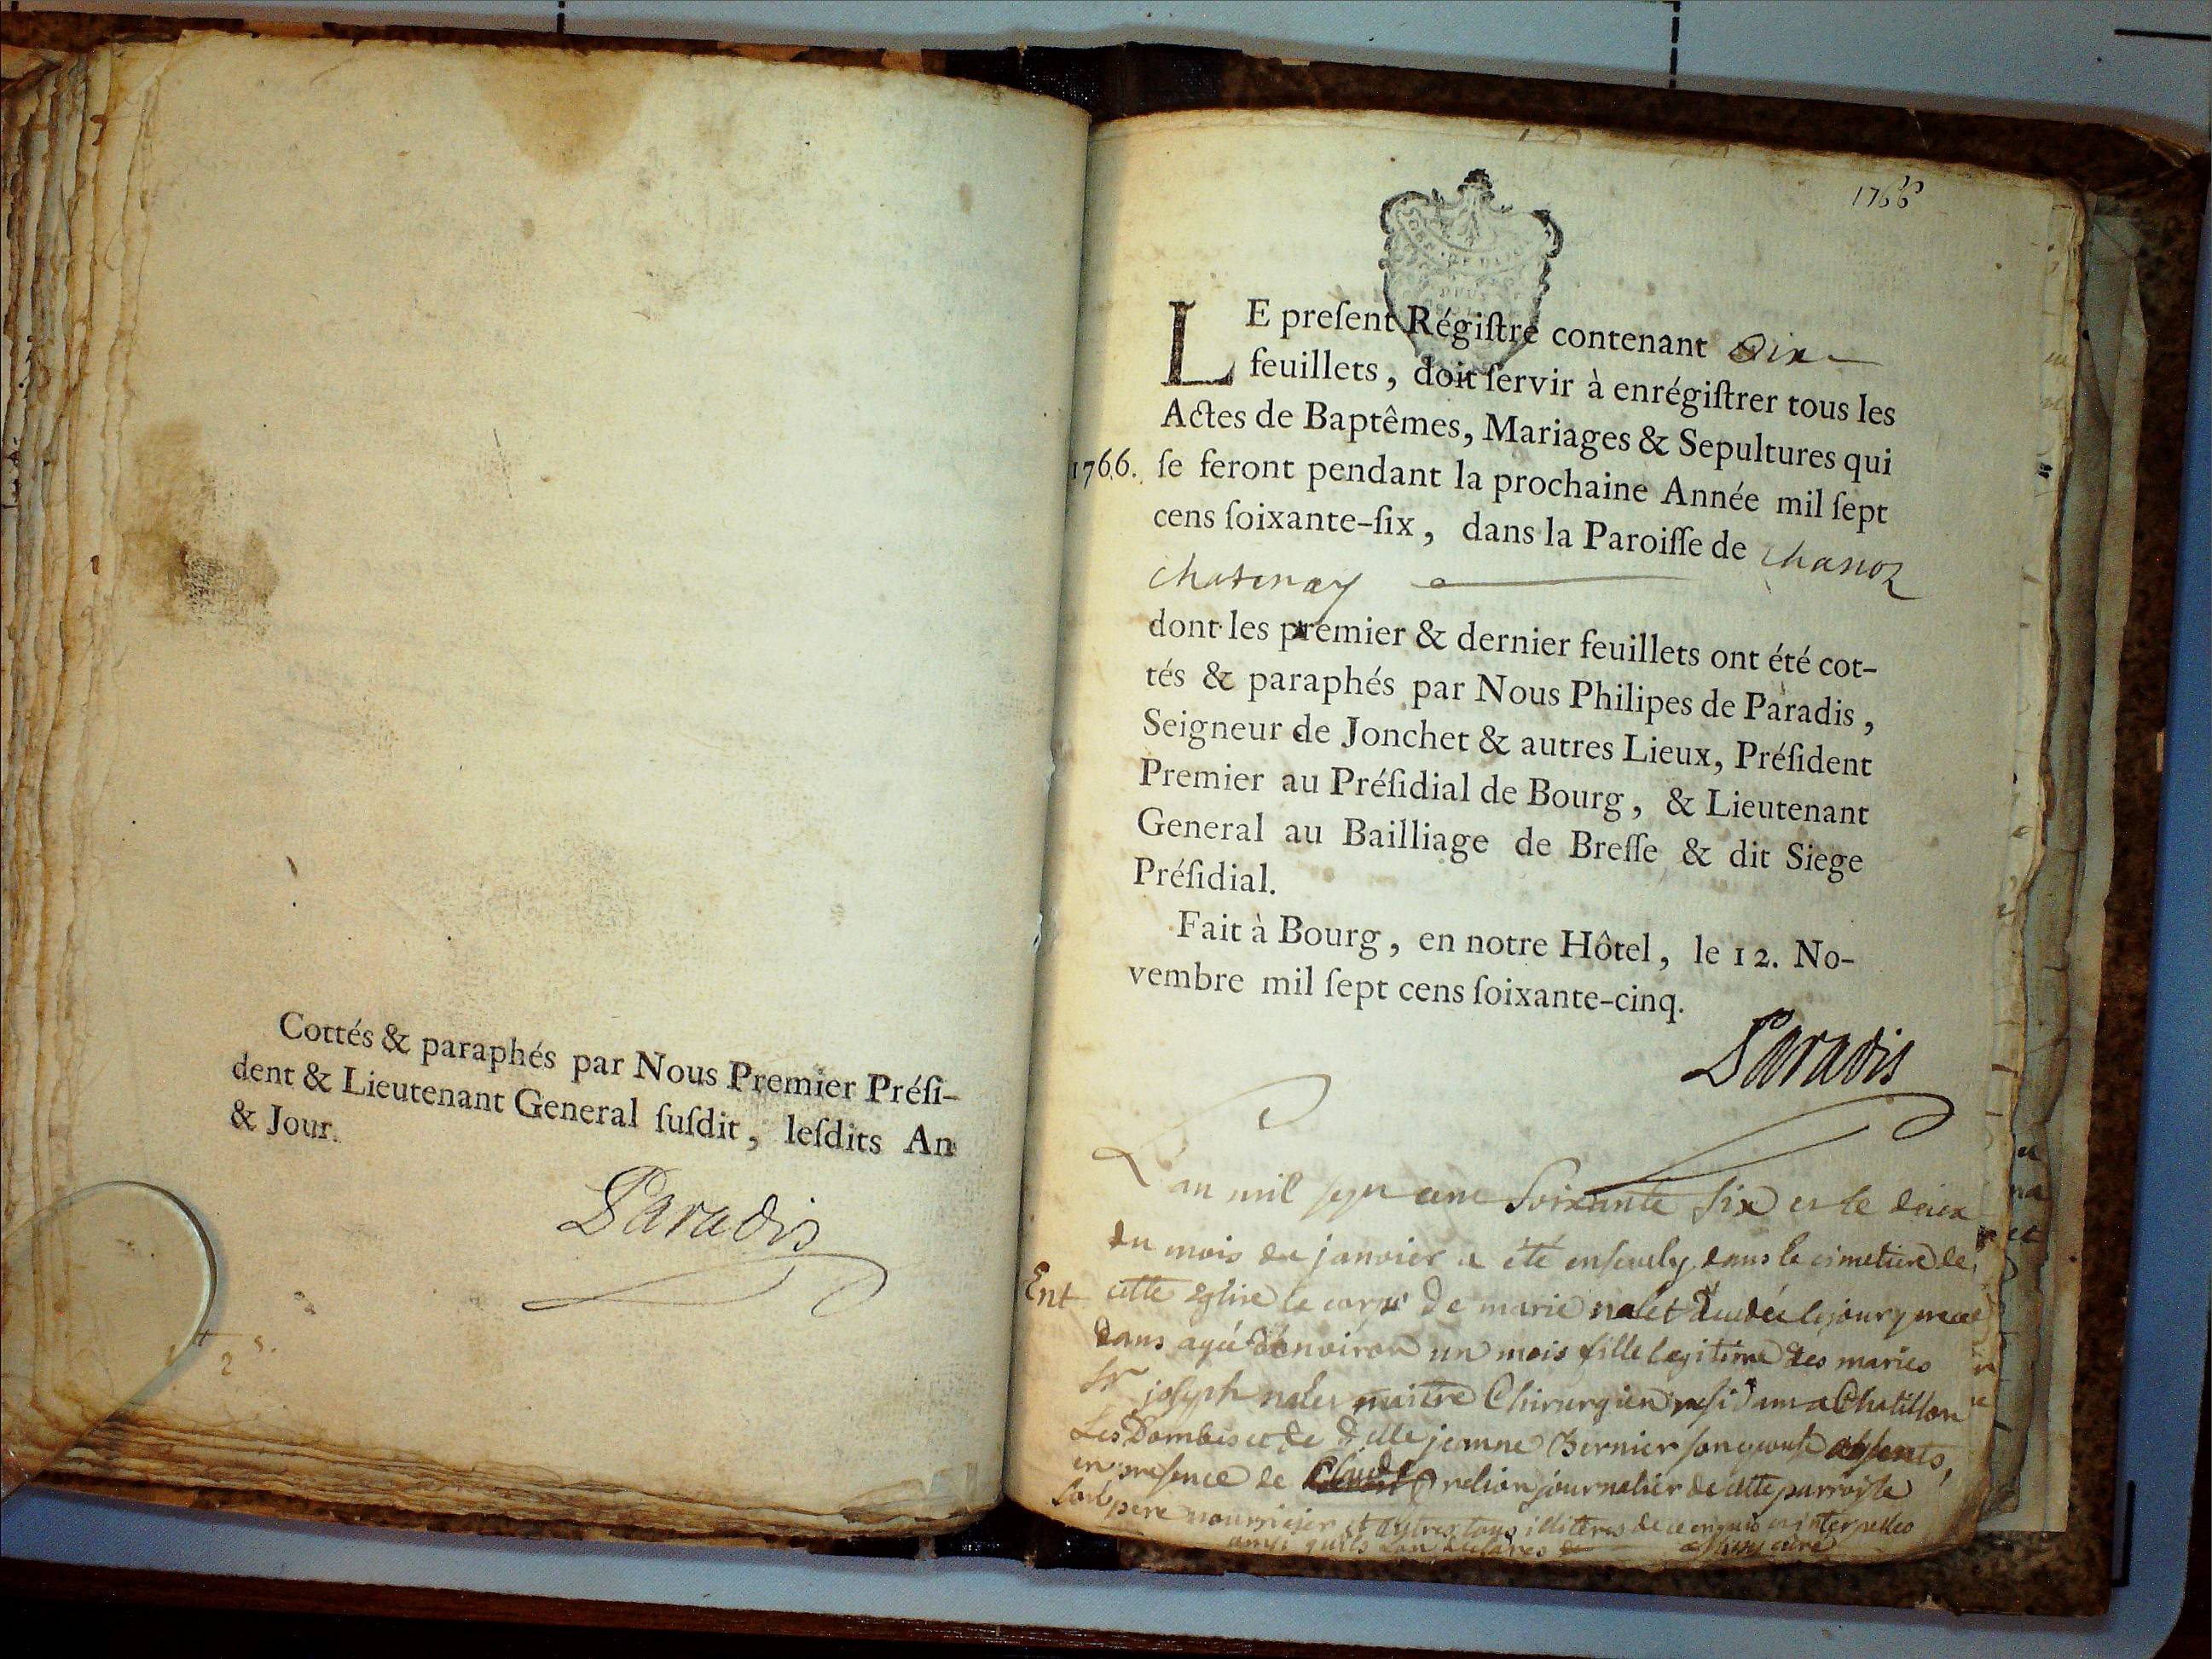 Cottés & paraphés par Nous Premier Préſi-
dent & Lieutenant General ſuſdit, leſdits An
& Jour.
Paradis
1766
LE preſent Régiſtre contenant Dix
feuillets, doit ſervir à enrégiſtrer tous les
Actes de Baptêmes, Mariages & Sepultures qui
1766. ſe feront pendant la prochaine Année mil ſept
cens ſoixante-ſix, dans la Paroiſſe de Chanoz
Chatenay
dont les premier & dernier feuillets ont été cot-
tés & paraphés par Nous Philipes de Paradis,
Seigneur de Jonchet & autres Lieux, Préſident
Premier au Préſidial de Bourg, & Lieutenant
General au Bailliage de Breſſe & dit Siege
Préſidial.
Fait à Bourg, en notre Hôtel, le 12. No-
vembre mil ſept cens ſoixante-cinq.
Paradis
L'an mil sept cent Soixante Six et le deux
du mois de janvier a été enseuely dans le cimetiere de
Ent cette Eglise le corps de marie nalet
dans agée d'environ un mois fille legitime des maries
Sr joseph nalet maitre Chirurgien a Chatillon
Les Dombes et de delle jeanne Bernier son epouse absents,
en presence de Claude journalier de cette parroisse
pere nourricier et autres tous de ce enquis interpelles
ainsi quils curé